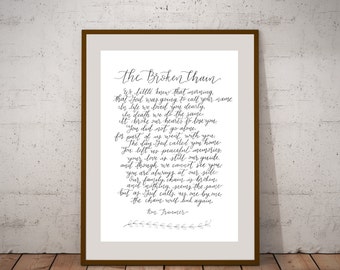 The Broken Chain
We little knew that morning,
that God was going to call your name
In life we loved you dearly,
In death we do the same.
It broke our hearts to lose you
You did not go alone.
for part of us went with you.
The day God called you home
You left us peaceful memories
your love is still our guide.
and though we cannot see you
you are always at our side.
Our family chain is broken,
and nothing seems the same
but as God calls us one by one
the chain will link again.
Ron Tranmer